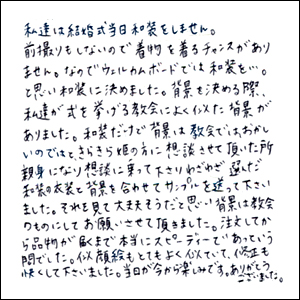 私達は結婚式当日和装をしません。
前撮りもしないので着物を着るチャンスがあり
ません。なのでウェルカムボードでは和装を…。
と思い和装に決めました。背景を決める際、
私達が式を挙げる教会によく似た背景が
ありました。和装だけで背景は教会では、おかし
いのではと、きらきら姫の方に想談させて頂いた所
親身になり想談に乗って下さりわざわざ選んだ
和装の衣装と背景を合わせてサンプルを送って下さい
ました。それを見て大丈夫そうだと思い背景は教会
のものにしてお願いさせて頂きました。注文してか
ら品物が届くまで本当にスピーディーであっという
間でした。似顔絵もとてもよく似ていて、修正も
快くして下さいました。当日が今から楽しみです。ありがとう
ございました。